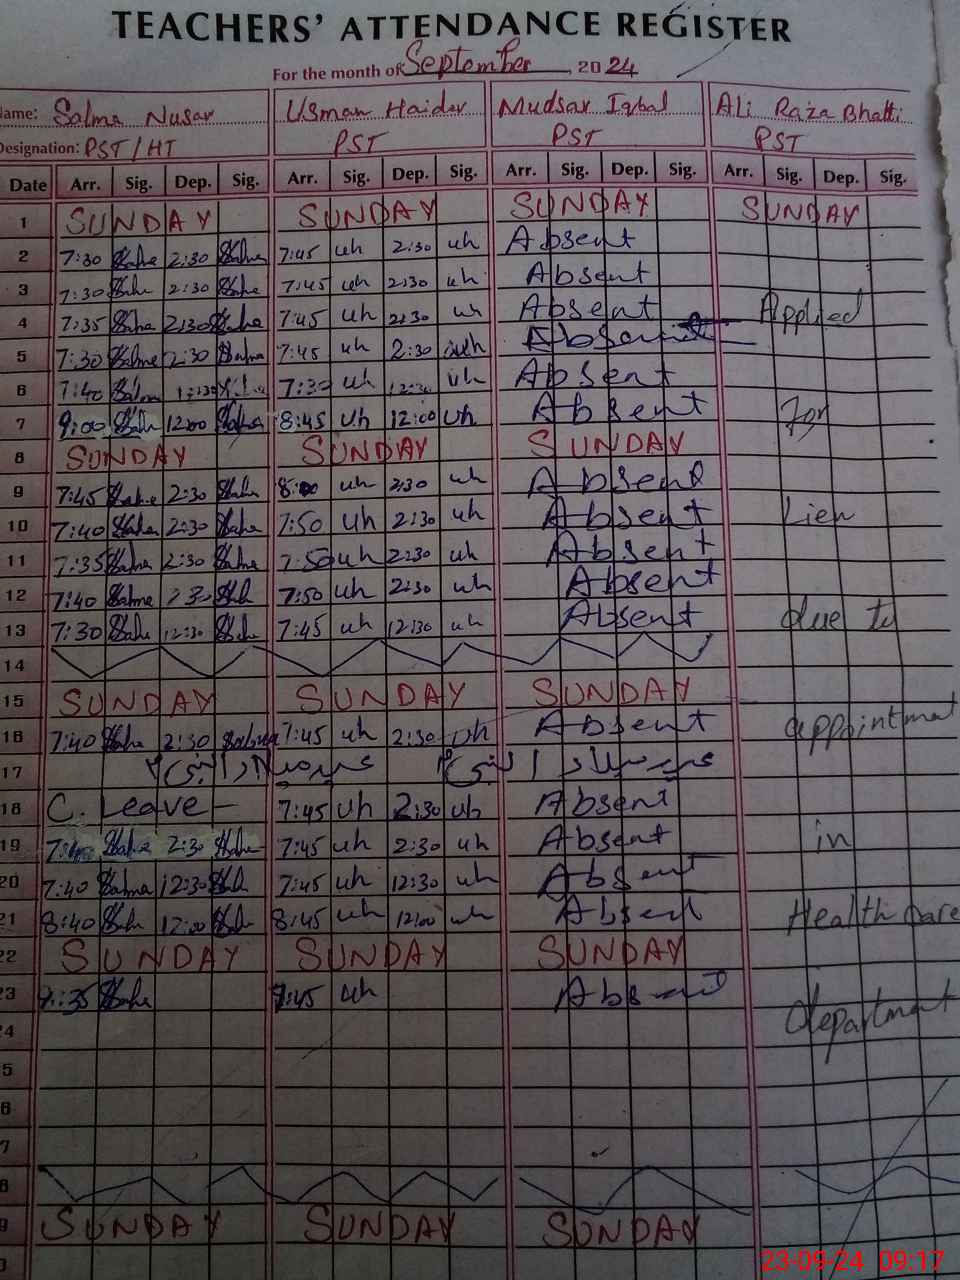 TEACHERS' ATTENDANCE REGISTER
For the month of September, 2024
Name: Salma Nusar Usman Haider Mudsar Iqbal Ali Raza Bhatti
Designation: PST/HT PST PST PST
Date Arr. Sig. Dep. Sig. Arr. Sig. Dep. Sig. Arr. Sig. Dep. Sig. Arr. Sig. Dep. Sig.
1 SUNDAY SUNDAY SUNDAY SUNDAY
2 7:30 2:30 7:45 uh 2:30 uh Absent
3 7:30 2:30 7:45 uh 2:30 uh Absent
4 7:35 2:30 7:45 uh 2:30 uh Absent Applied
5 7:30 2:30 7:45 uh 2:30 uh Absent
6 7:40 7:30 uh 12:30 uh Absent
7 9:00 12:00 8:45 uh 12:00 uh Absent For
8 SUNDAY SUNDAY SUNDAY
9 7:45 2:30 8:00 uh 2:30 uh Absent
10 7:40 2:30 7:50 uh 2:30 uh Absent Lien
11 7:35 2:30 7:50 uh 2:30 uh Absent
12 7:40 2:30 7:50 uh 2:30 uh Absent
13 7:30 12:30 7:45 uh 12:30 uh Absent due to
14
15 SUNDAY SUNDAY SUNDAY
16 7:40 2:30 7:45 uh 2:30 uh Absent appointmat
17 عید میلاد النبیؐ عید میلاد النبیؐ
18 C. Leave – 7:45 uh 2:30 uh Absent
19 7:40 2:30 7:45 uh 2:30 uh Absent in
20 7:40 12:30 7:45 uh 12:30 uh Absent
21 8:40 12:00 8:45 uh 12:00 uh Absent Health care
22 SUNDAY SUNDAY SUNDAY
23 7:35 7:45 uh Absent
4 department
5
6
7
8
9 SUNDAY SUNDAY SUNDAY
23-09-24 09:17